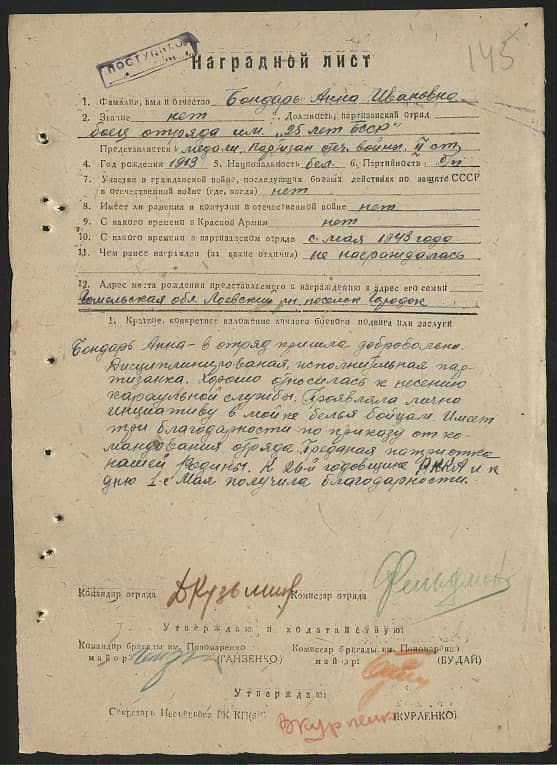 145
ПОСТУПИЛО
Наградной лист
1. Фамилия, имя и отчество Бондарь Анна Ивановна
2. Звание нет Должность, партизанский отряд
боец отряда им. „25 лет БССР"
Представляется к медали. Партизан Отеч. войны. II ст.
4. Год рождения 1913 5. Национальность бел. 6. Партийность б/п
7. Участие в гражданской войне, последующих боевых действиях по защите СССР
в отечественной войне (где, когда) нет
8. Имеет ли ранения и контузии в отечественной войне нет.
9. С какого времени в Красной Армии нет
10. С какого времени в партизанском отряде с мая 1943 года
11. Чем ранее награжден (за какие отличия) не награждалась
12. Адрес места рождения представляемого к награждению и адрес его семьи
Гомельская обл. Лоевский рн. поселок Городок
1. Краткое, конкретное изложение личного боевого подвига или заслуги
Бондарь Анна - в отряд пришла добровольно.
Дисциплинированая, исполнительная пар-
тизанка. Хорошо относилась к несению
караульной службы. Проявляла лично
инициативу в мойке белья бойцам. Имеет
три благодарности по приказу от ко-
мандования отряда. Преданая патриотка
нашей Родины. К 26-й годовщине РККА и к
дню 1-е Мая получила благодарности.
Командир отряда ДКузьмин Комиссар отряда Фельдман
Утверждаю и ходатайствую:
Командир бригады им. Пономаренко Комиссар бригады им. Пономаренко
майор: (ГАНЗЕНКО) майор: (БУДАЙ)
Утверждаю:
Секретарь РК КП(б)Б ВКурленко (КУРЛЕНКО)